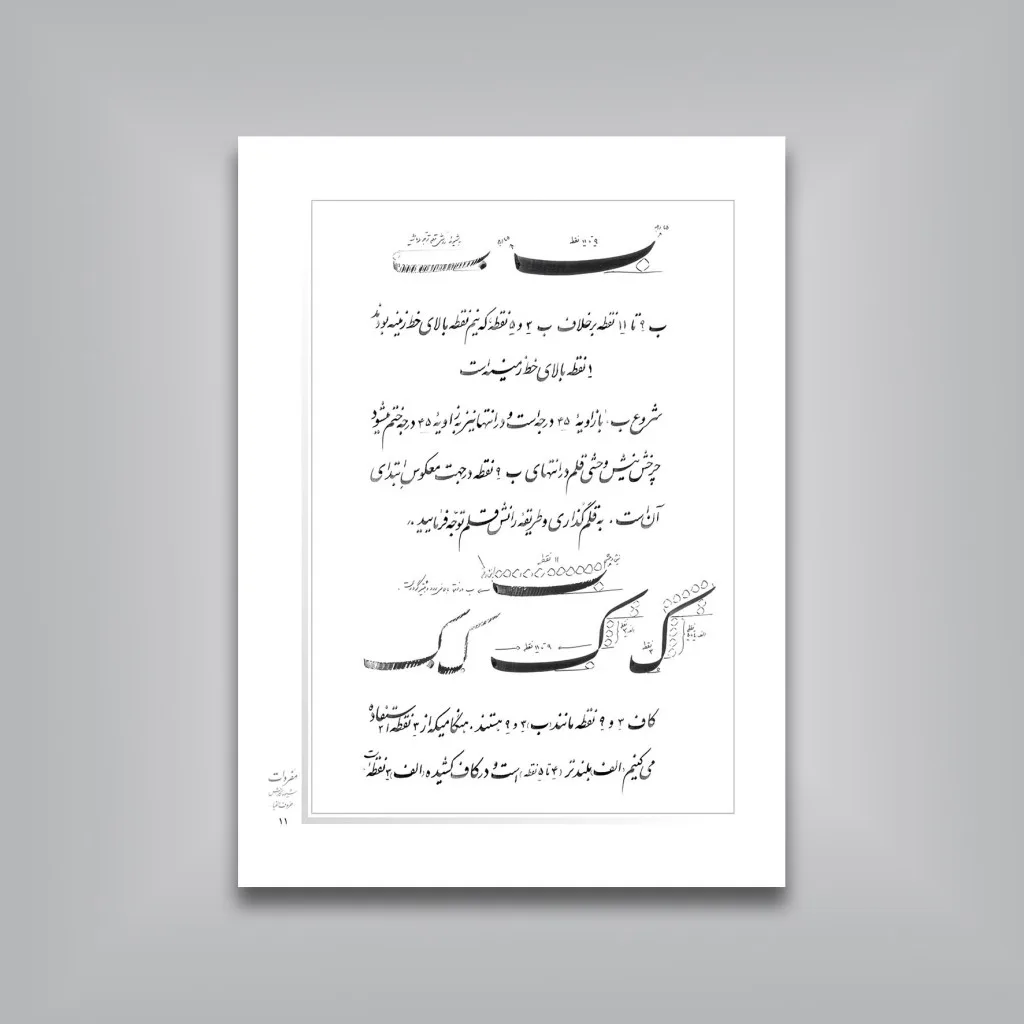 ۹ تا ۱۱ نقطه
ب ۹ تا ۱۱ نقطه برخلاف ب ۳ و ۵ نقطه که نیم نقطه بالای خط زمینه بودند
۱ نقطه بالای خط زمینه است
شروع ب، با زاویهٔ ۴۵ درجه است و در انتها نیز به زاویهٔ ۴۵ درجه ختم میشود
چرخش نیش وحشی قلم در انتهای ب ۹ نقطه در جهت معکوس ابتدای
آن است. به قلم‌گذاری و طریقهٔ رانش قلم توجّه فرمایید.
۱۱ نقطه
۹ تا ۱۱ نقطه
۳ نقطه
کاف ۳ و ۹ نقطه مانند (ب) ۳ و ۹ هستند. هنگامیکه از ۳ نقطه استفاده
می‌کنیم (الف) بلندتر (۴ تا ۵ نقطه) است و در کاف کشیده (الف) ۳ نقطه است
مفردات
۱۱